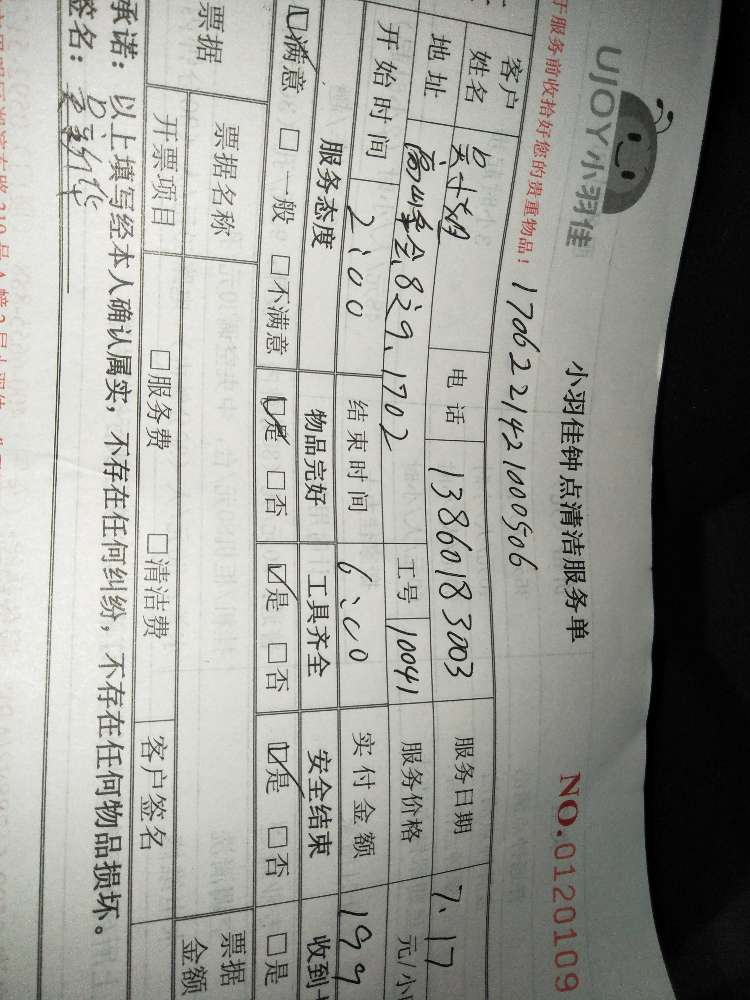 UJOY小羽佳
小羽佳钟点清洁服务单
NO.0120109
于服务前收拾好您的贵重物品！
1706221421000506
客户
姓名
电话 13860183003 服务日期 7.17
地址 1702 工号 10041 服务价格 元/小
开始时间 2:00 结束时间 6:00 实付金额 199
服务态度 物品完好 工具齐全 安全结束 收到
☑满意 □一般 □不满意 ☑是 □否 ☑是 □否 ☑是 □否 □是
票据 票据名称 票据
金额
开票项目 □服务费 □清洁费 客户签名
承诺：以上填写经本人确认属实，不存在任何纠纷，不存在任何物品损坏。
签名：